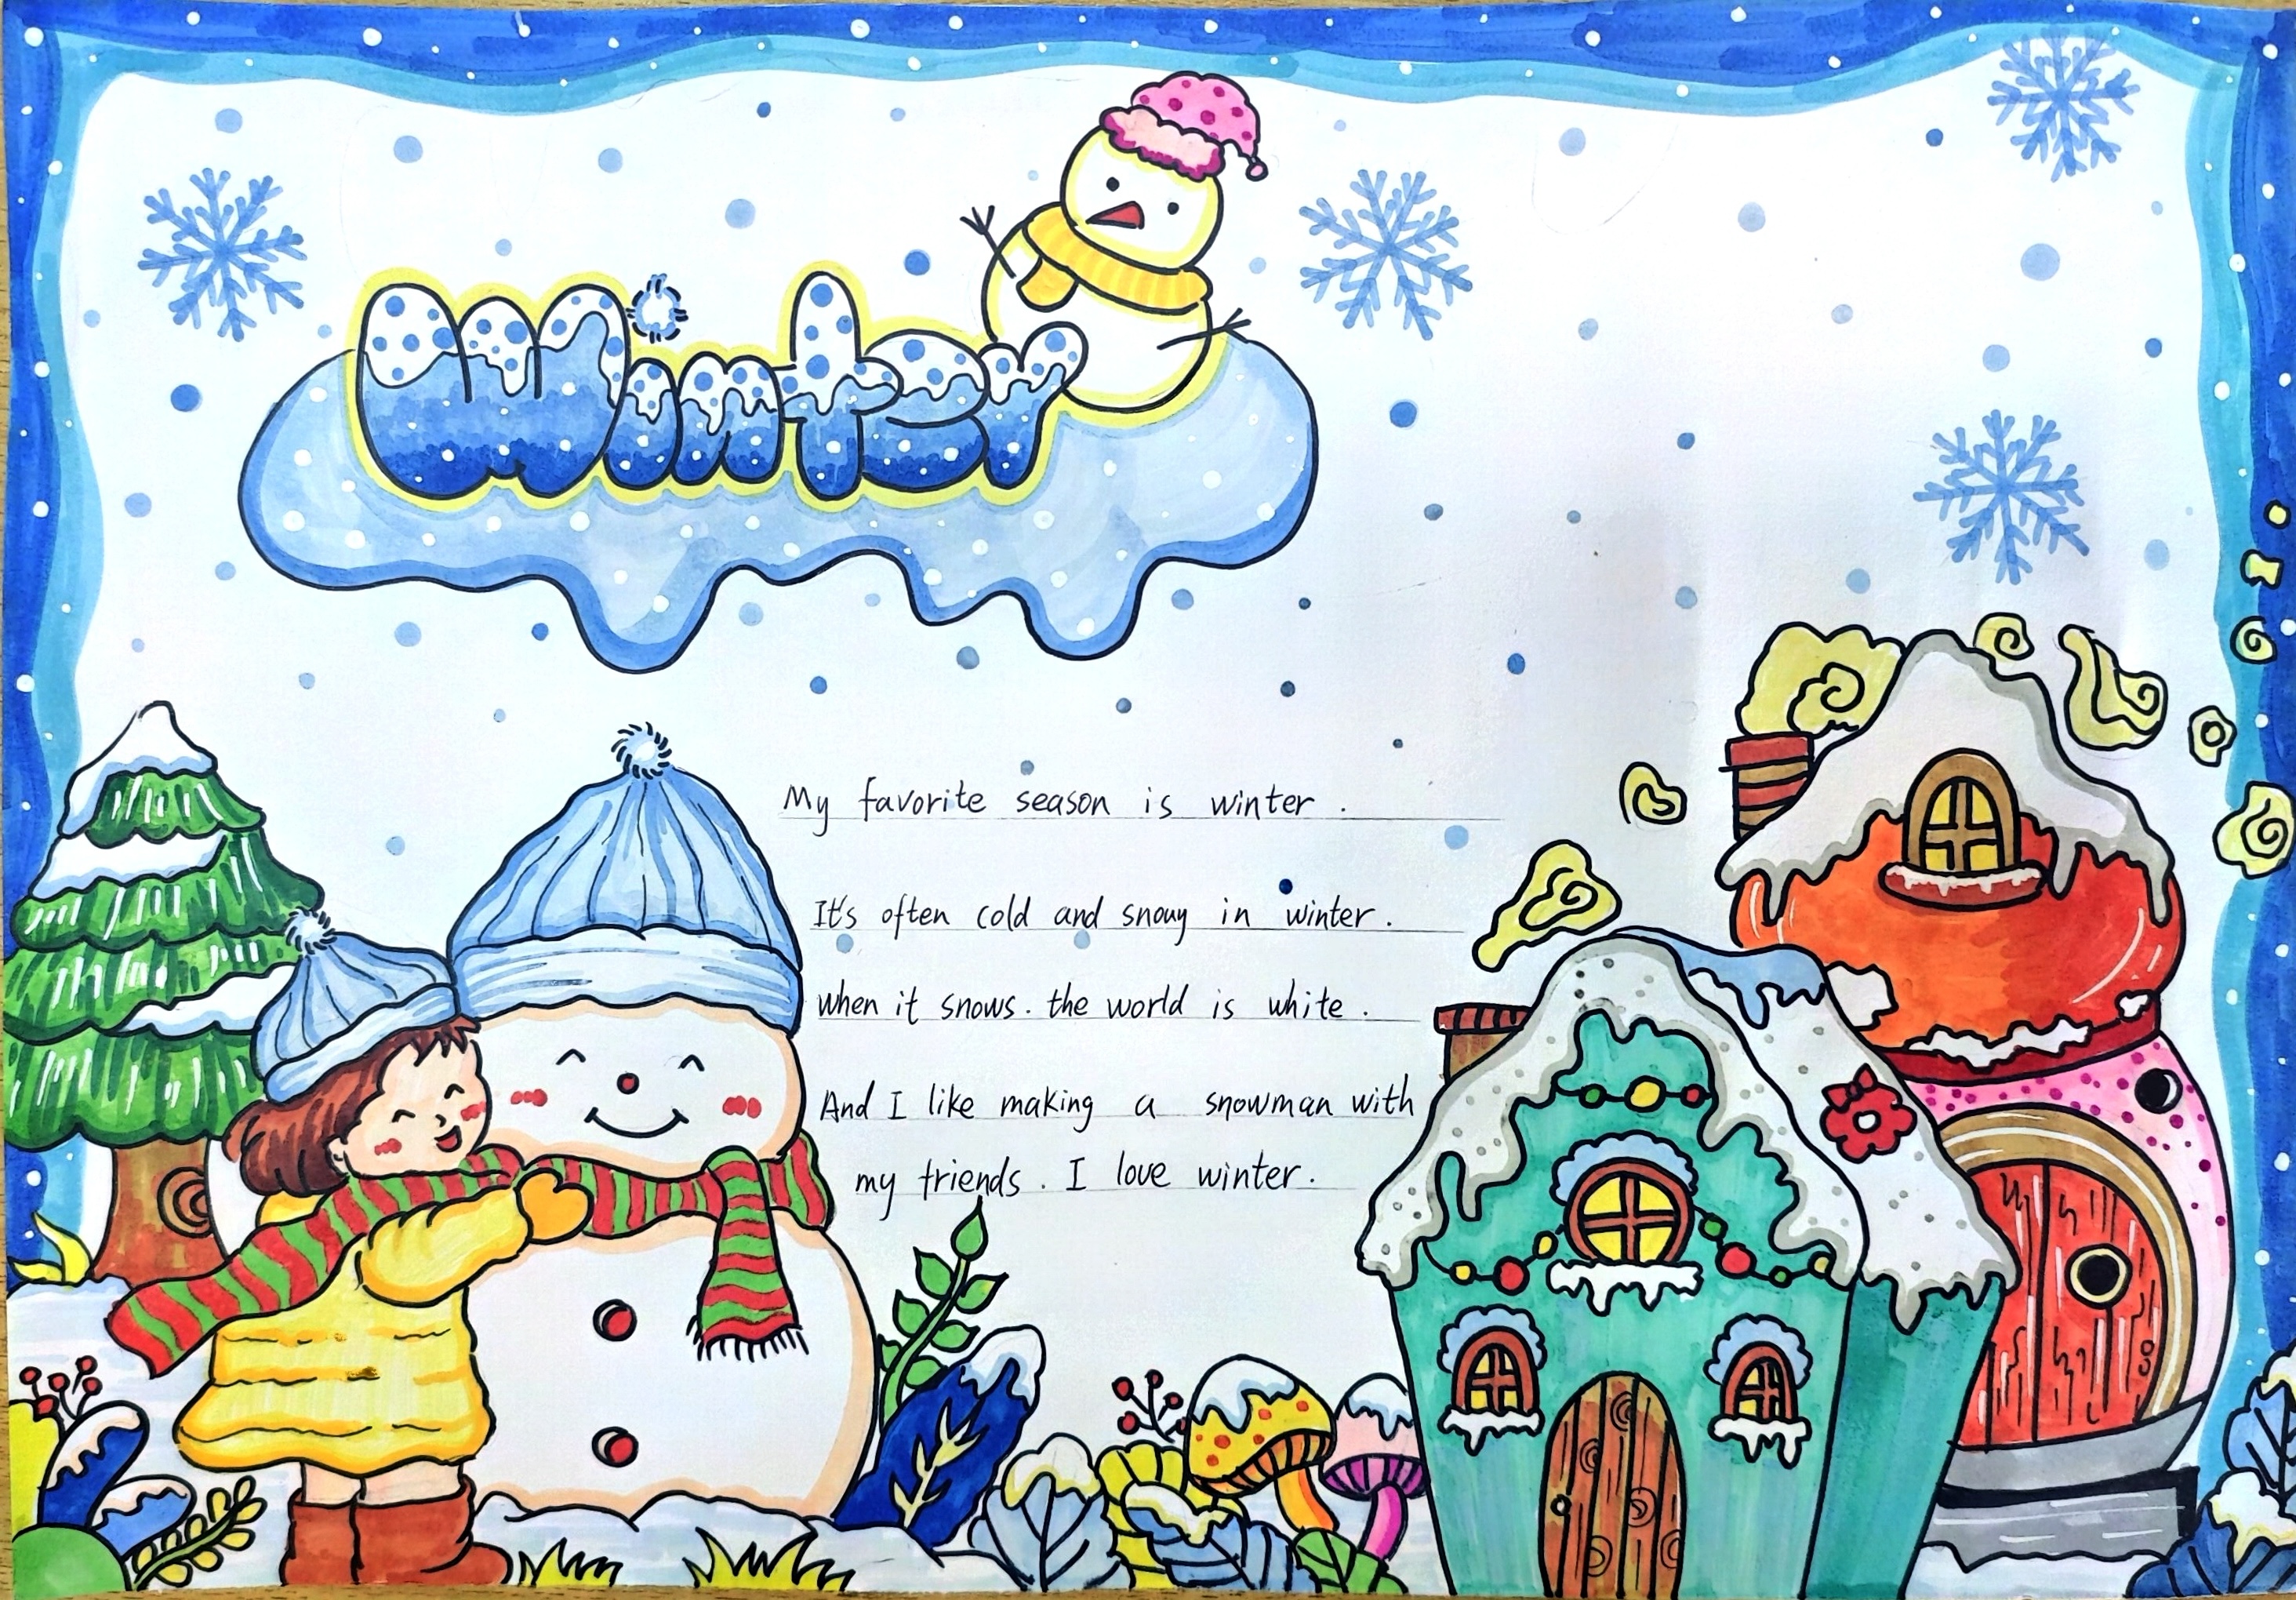 Winter
My favorite season is winter.
It's often cold and snouy in winter.
when it snows. the world is white.
And I like making a snowman with
my friends. I love winter.